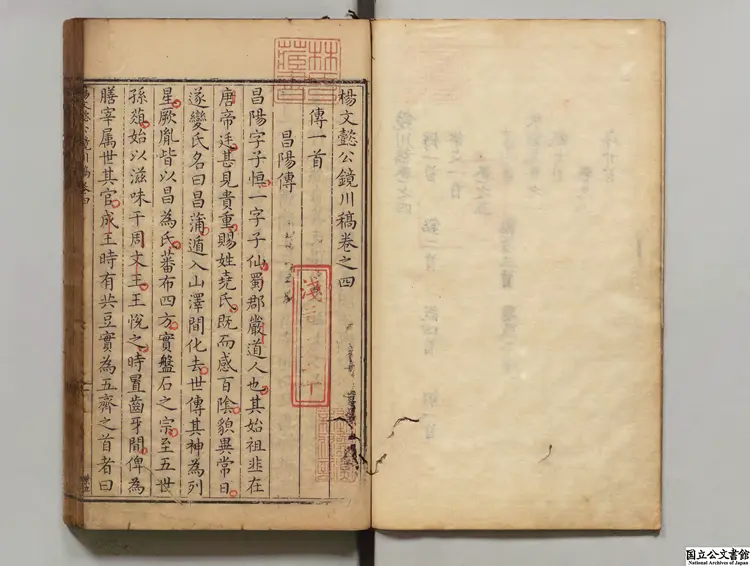 楊文懿公鏡川稿卷之四
傳一首
昌陽傳
昌陽字子慎一字子仙蜀郡嚴道人也其始祖韭在
唐帝廷甚見貴重賜姓堯氏既而感百陰貌異常日
遂變氏名曰昌蒲遁入山澤間化去世傳其神為列
星厥胤皆以昌為氏蕃布四方實盤石之宗至五世
孫始以滋味干周文王王悅之時置齒牙間俾為
膳宰属世其官成王時有共豆實為五齊之首者曰
楊文懿公鏡川稿卷四
林氏藏書
国立公文書館
National Archives of Japan